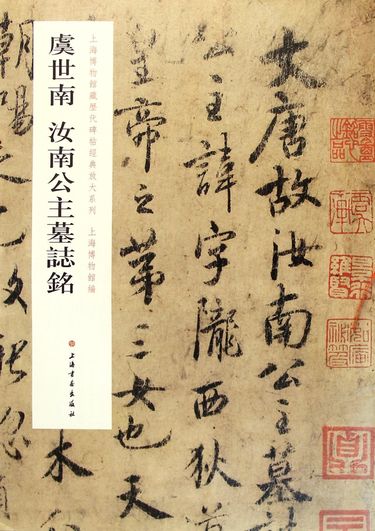 大唐故汝南公主墓誌
公主諱字隴西狄道
皇帝之第三女也天
上海博物館藏歷代碑帖經典放大系列 上海博物館編
虞世南 汝南公主墓誌銘
上海書畫出版社
木
朝陽